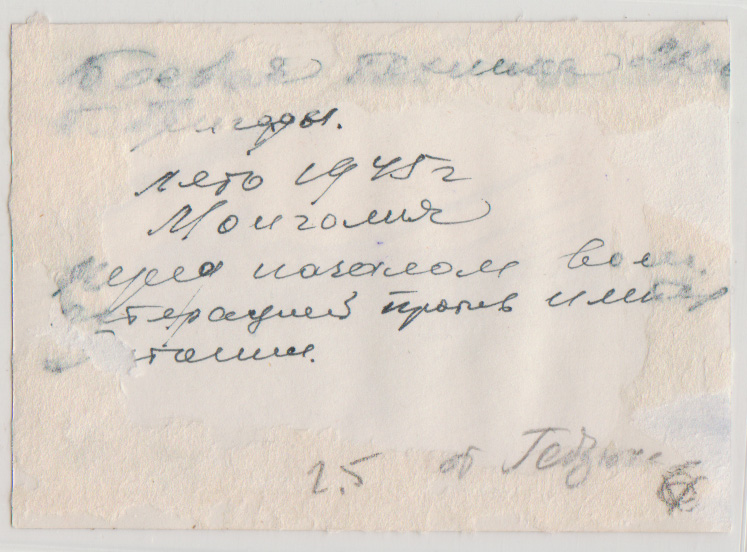 Боевая техника
бригады.
лето 1945 г
Монголия
перед началом воен.
операцией против импер
Японии.
25 от